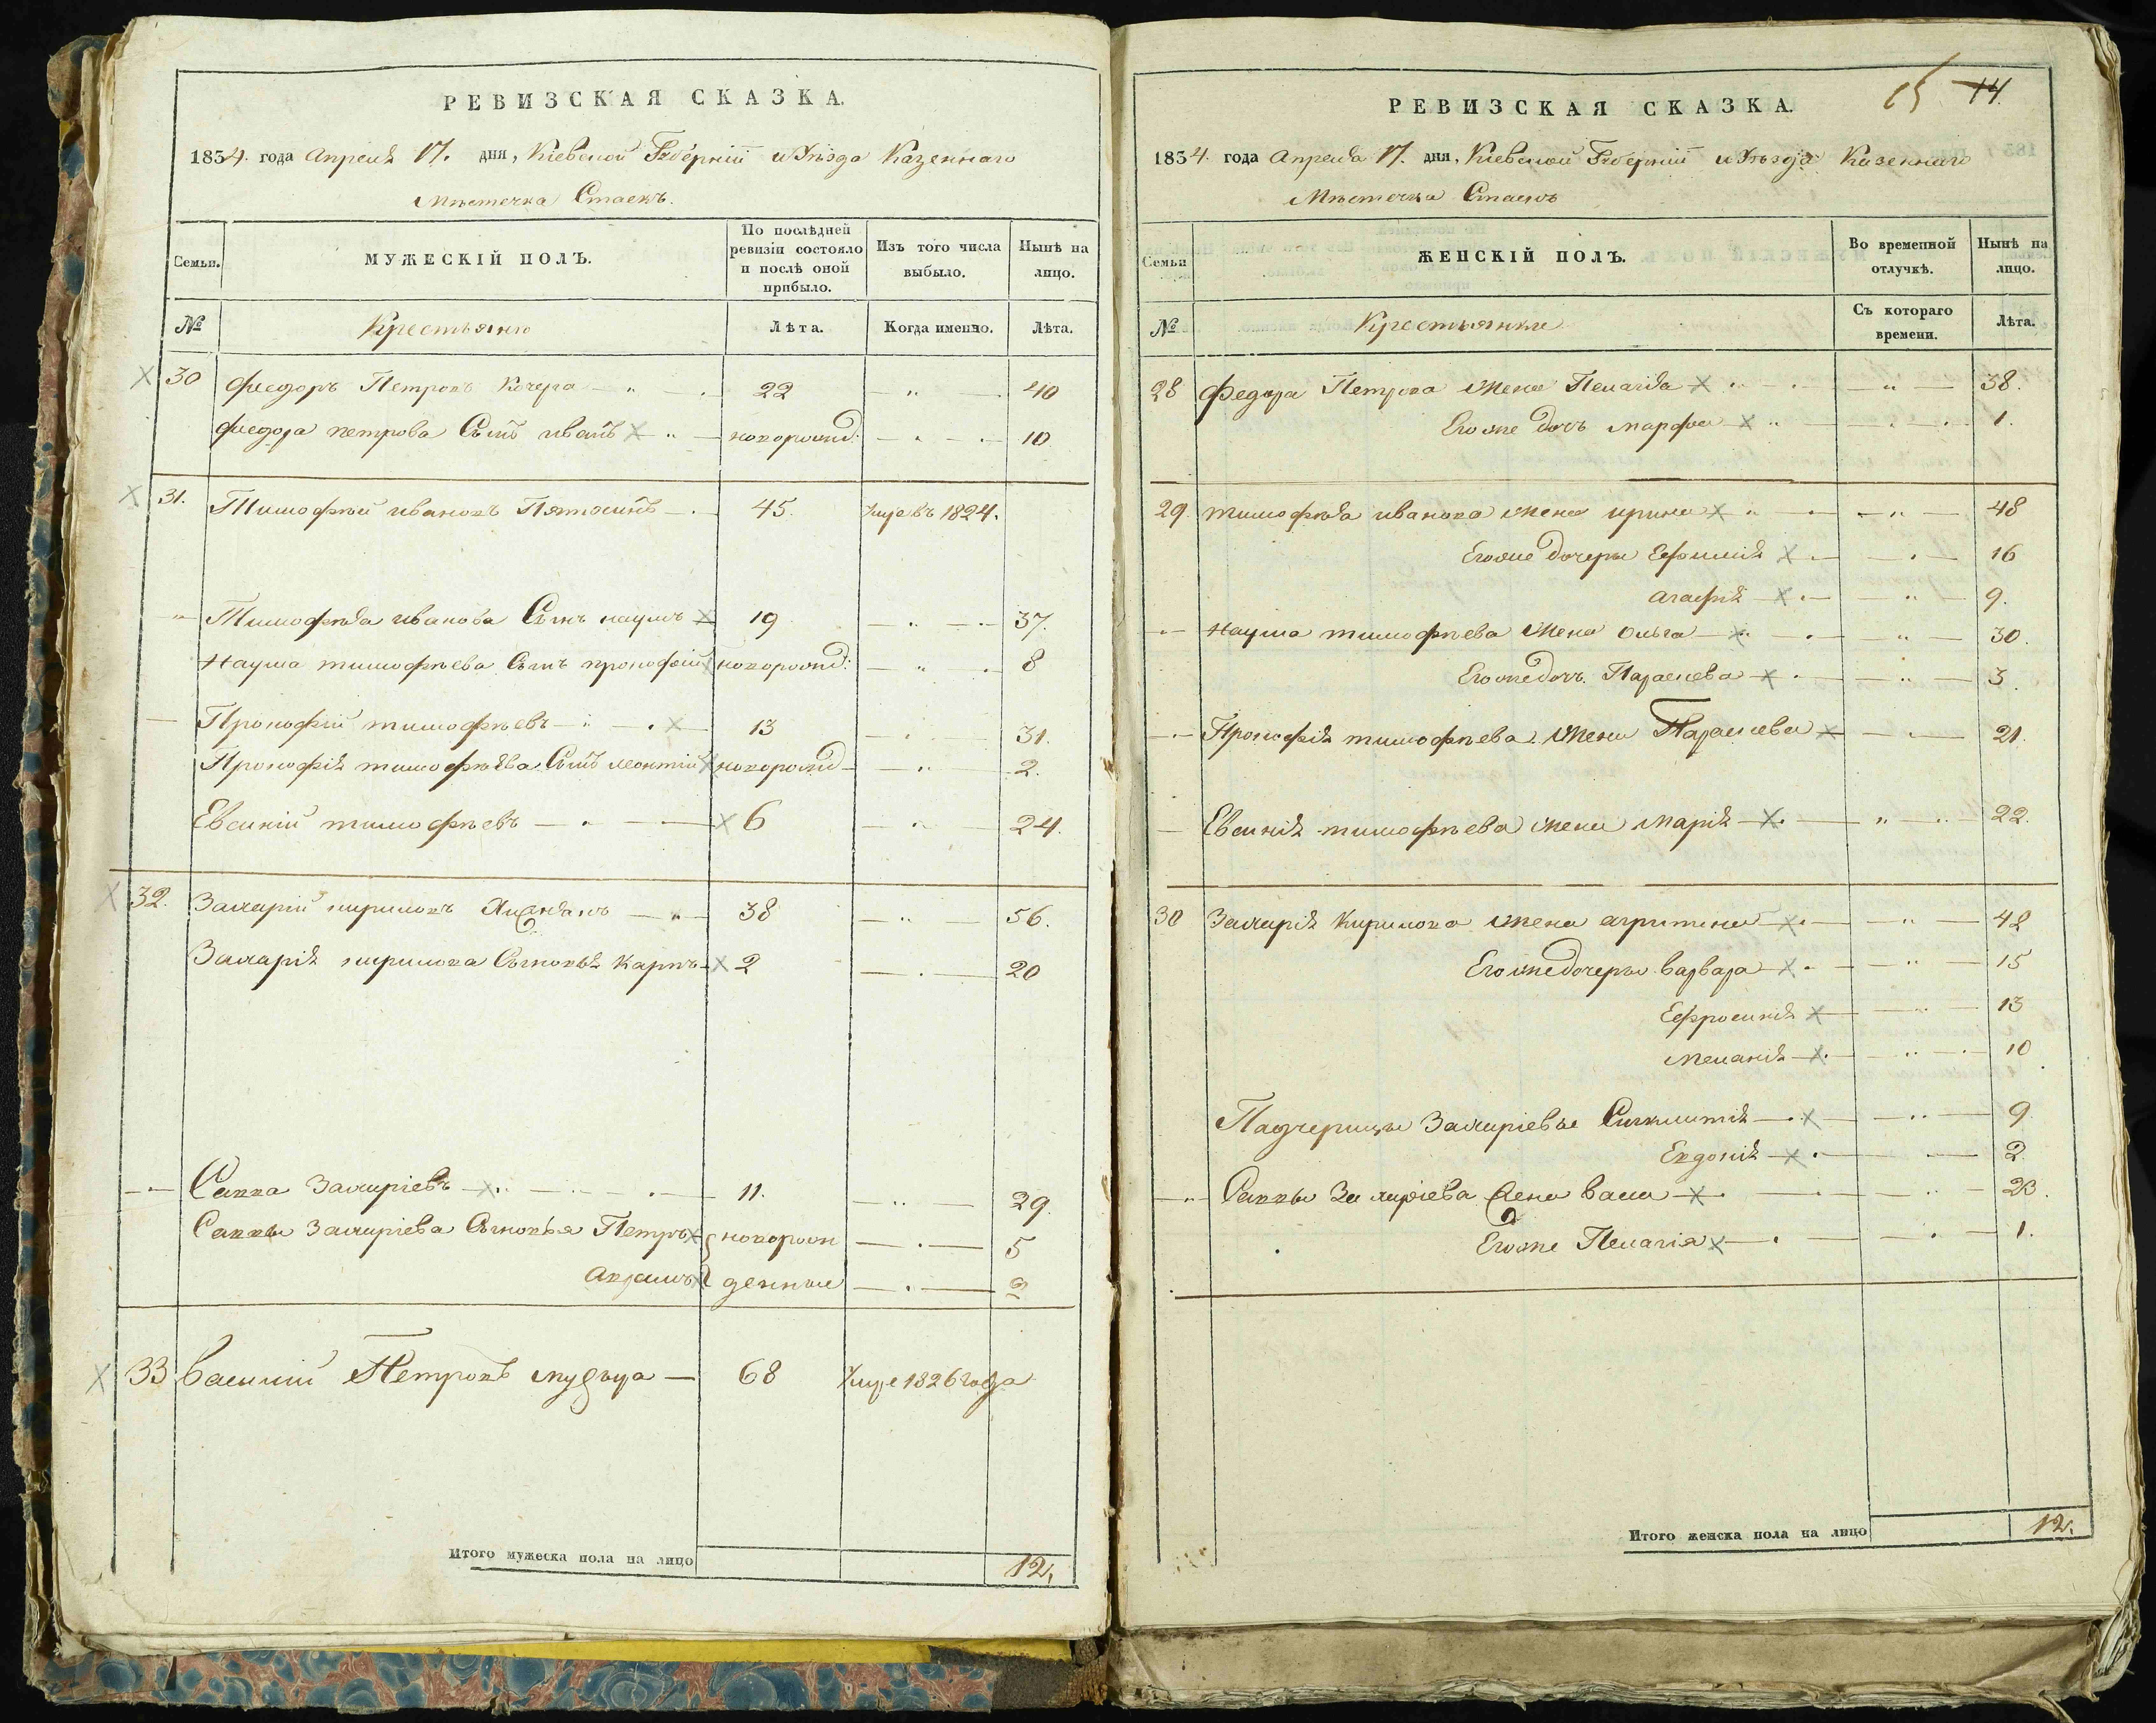 РЕВИЗСКАЯ СКАЗКА.
1834. года Апреля 17. дня, Кіевской Губерніи и Уѣзда Казеннаго
Мѣстечка Стаекъ.
Семьи.
МУЖЕСКІЙ ПОЛЪ.
По послѣдней ревизіи состояло и послѣ оной прибыло.
Изъ того числа выбыло.
Нынѣ на лицо.
№
Крестьяне
Лѣта.
Когда именно.
Лѣта.
30 Феодоръ Петровъ Кочера 22 40
Феодора петрова Сынъ иванъ новорожд: 10
31. Тимофѣй ивановъ 45. Умре въ 1824.
Тимофѣя иванова Сынъ наумъ 19 37.
Наума тимофѣева Сынъ прокофій новорожд: 8
Прокофій тимофѣевъ 13 31.
Прокофія тимофѣева Сынъ леонтій новорожд 2.
Евсикій тимофѣевъ 6 24.
32. Захарій кириловъ 38 56.
Захарія кирилова Сыновья Карпъ 2 20
Савва Захаріевъ 11. 29.
Саввы Захаріева Сыновья Петръ новорож 5
Аврамъ денные 2
33 Василий Петровъ 68 Умре 1826 года
Итого мужеска пола на лицо 12.
15 14.
РЕВИЗСКАЯ СКАЗКА.
1834. года Апреля 17. дня, Кіевской Губерніи и Уѣзда Казеннаго
Мѣстечка Стаекъ
Семьи
ЖЕНСКІЙ ПОЛЪ.
Во временной отлучкѣ.
Нынѣ на лицо.
№
Крестьянки
Съ котораго времени.
Лѣта.
28 Федора Петрова жена Пелагія 38.
Его же дочь марфа 1.
29. тимофѣя иванова жена ирина 48
Его же дочери Ефимія 16
агафія 9.
Наума тимофѣева жена Ольга 30.
Его же дочь Параскева 3.
Прокофія тимофѣева жена Параскева 21.
Евсикія тимофѣева жена Марія 22.
30 Захарія Кирилова жена агрипина 42
Его же дочери варвара 15
Ефросинія 13
Меланія 10
Падчерицы Захаріевы Синклитія 9
Евдокія 2
Саввы Захаріева жена васа 23.
Его же Пелагія 1.
Итого женска пола на лицо 12.